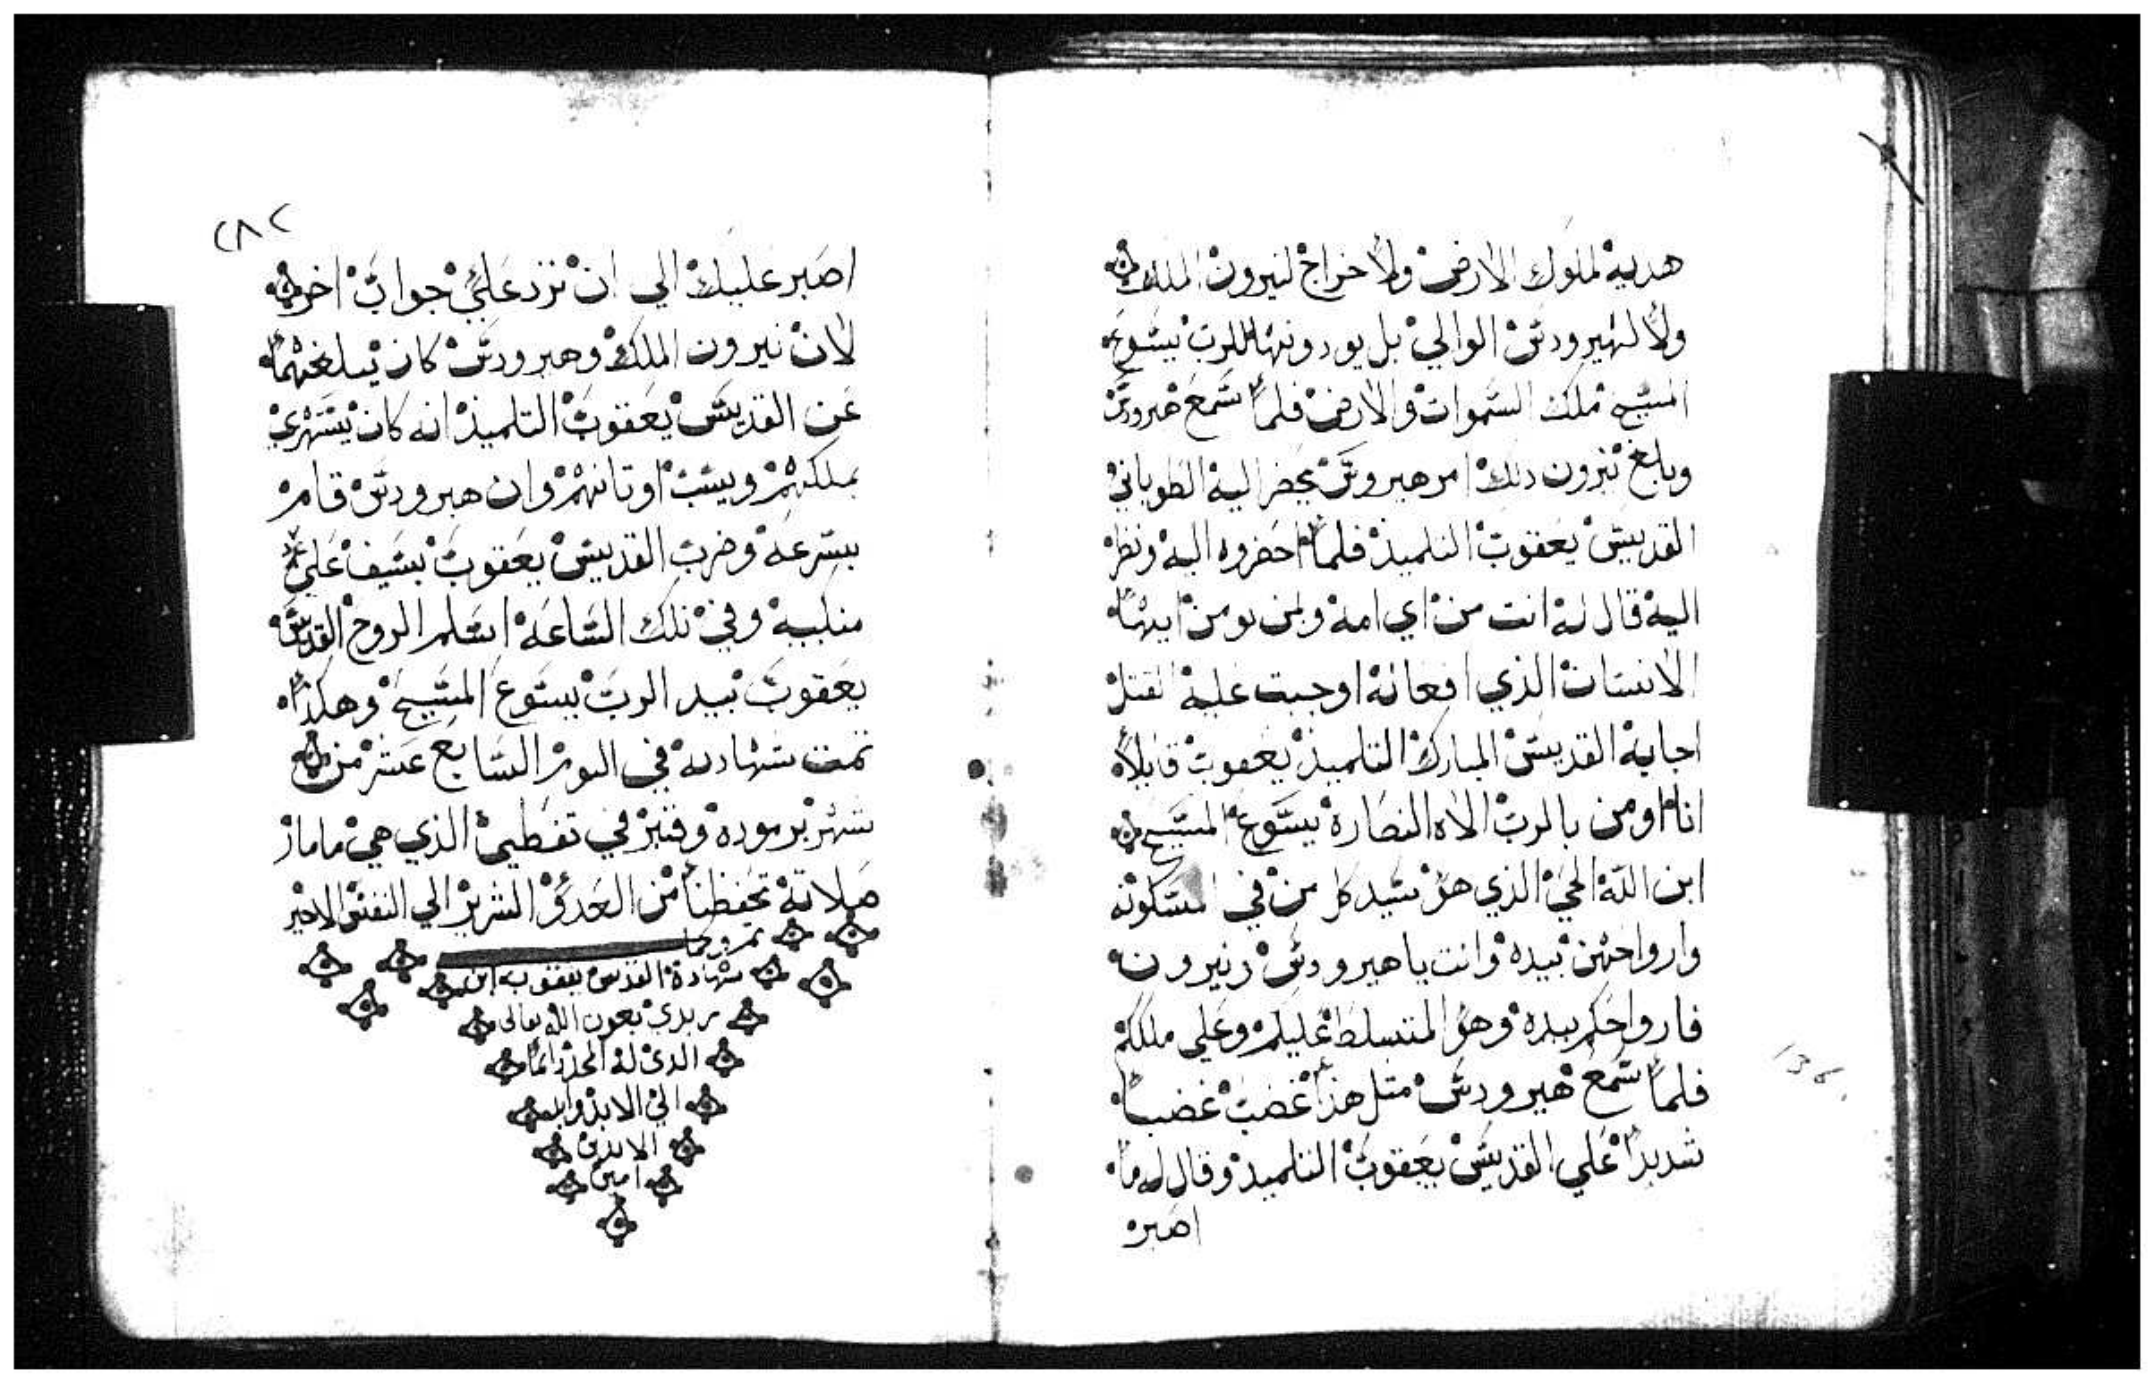 هدية لملوك الارض ولا خراج لنيرون الملك
ولا لهيرودس الوالي بل يودونها للرب يسوع
المسيح ملك السموات والارض فلما سمع هيرودس
وبلغ نيرون دلك امر هيرودس بحضر اليه الطوباني
القديس يعقوب التلميذ فلما احضروه اليه ونظر
اليه قال له انت من اي امه ولمن تومن ايها
الانسان الذي افعاله اوجبت عليه القتل
اجابه القديس المبارك التلميذ يعقوب قايلا
انا اومن بالرب الاه النصاره يسوع المسيح
ابن الله الحي الذي هو سيد كل من في المسكونه
وارواحهن بيده وانت يا هيرودس ونيرون
فارواحكم بيده وهو المتسلط عليكم وعلي مللكم
فلما سمع هيرودس متل هذا غضب غضبا
شديدا علي القديس يعقوب التلميذ وقال له ما
اصبر
٢٨٢
اصبر عليك الي ان ترد علي جواب اخر
لان نيرون الملك وهيرودس كان يبلغهما
عن القديس يعقوب التلميذ انه كان يستهزي
بملكهم ويسب اوتانهم وان هيرودس قام
بسرعه وضرب القديس يعقوب بسيف علي
منكبيه وفي تلك الساعه اسلم الروح القديس
يعقوب بيد الرب يسوع المسيح وهكذا
تمت شهادته في اليوم السابع عشر من
شهر برموده وقبر في تفطي الذي هي مامار
صلاته تحفظنا من العدو الشرير الي النفس الاخير
تم وكما
شهادة القديس يعقوب ابن
زبدي بعون الله تعالى
الذي له المجد دائما
الي الابد وابد
الابدين
امين
136